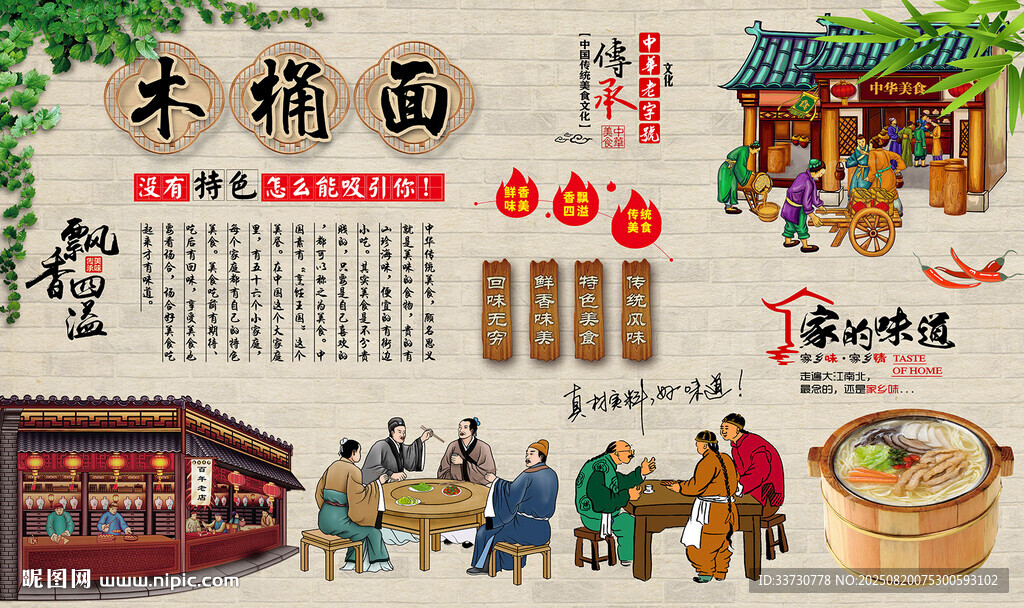 木桶面
没有特色怎么能吸引你!
飘香四溢
中华传统美食,顾名思义
就是美味的食物,贵的有
山珍海味,便宜的有街边
小吃。其实美食是不分贵
贱的,只要是自己喜欢的
,都可以称之为美食。中
国素有“烹饪王国”这个
美誉。在中国这个大家庭
里,有五十六个小家庭,
每个家庭都有自己的特色
美食。美食吃前有期待、
吃后有回味,享受美食也
要看场合,场合好美食吃
起来才有味道。
【中国传统美食文化】
傳承
中華美食
中華老字號
文化
鲜香
味美
香飘
四溢
传统
美食
回味无穷
鲜香味美
特色美食
传统风味
真材实料,好味道!
中华美食
食
家的味道
家乡味·家乡情
TASTE
OF HOME
走遍大江南北,
最念的,还是家乡味...
百年老店
昵图网 www.nipic.com
ID:33730778 NO:20250820075300593102